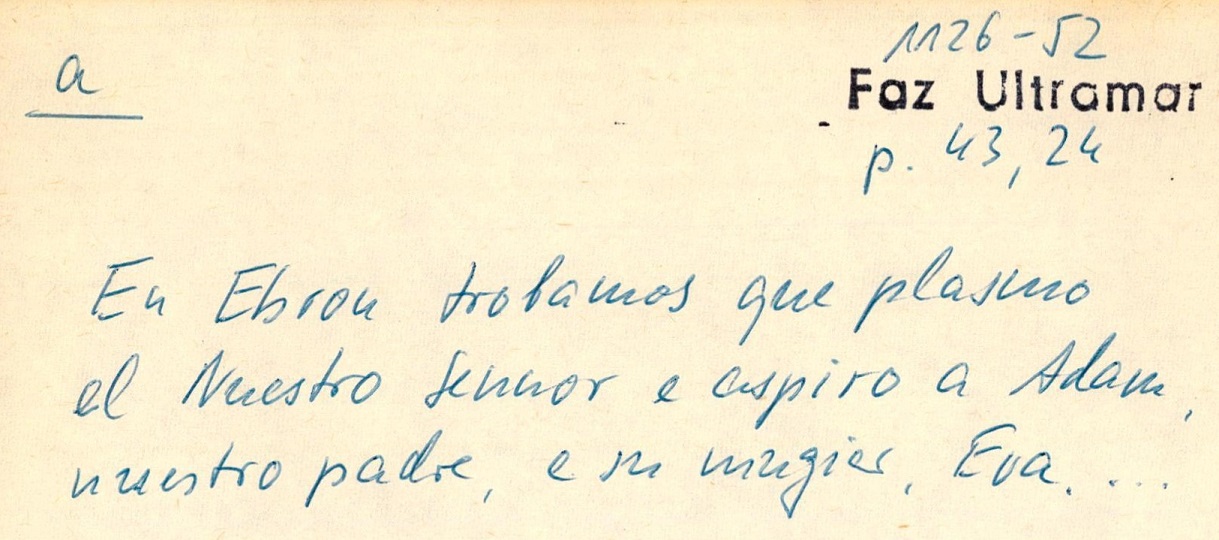 a
1126-52
Faz Ultramar
p. 43, 24
En Ebron trobamos que plasmo
el Nuestro Sennor e aspiro a Adam,
nuestro padre, e su mugier, Eva. ...